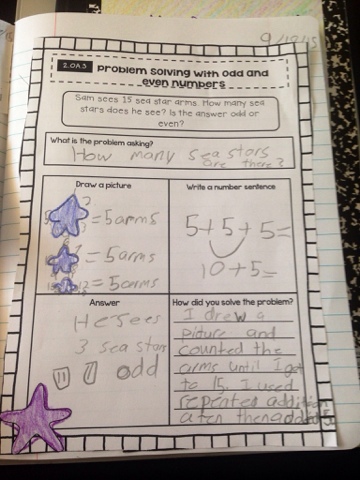 9/19/15
2.OA.3 Problem solving with odd and
even numbers
Sam sees 15 sea star arms. How many sea
stars does he see? Is the answer odd or
even?
What is the problem asking?
How many sea stars
are there?
Draw a picture
=5arms
=5arms
=5arms
Write a number sentence
5+5+5=
10+5=
Answer
He sees
3 sea stars
odd
How did you solve the problem?
I drew a
picture and
counted the
arms until I got
to 15. I used
repented addition
aten then added 5